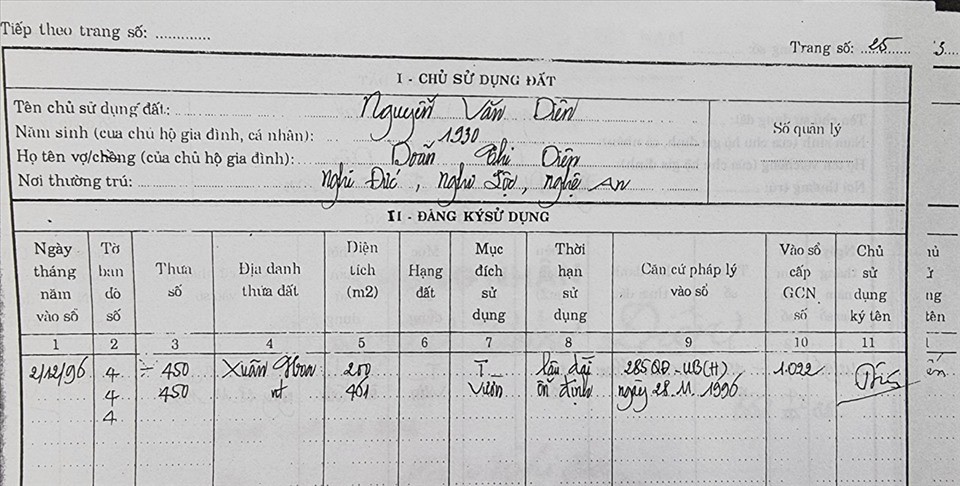 Tiếp theo trang số: .............
Trang số: 25
3
I - CHỦ SỬ DỤNG ĐẤT
Tên chủ sử dụng đất: Nguyễn Văn Diên
Năm sinh (của chủ hộ gia đình, cá nhân): 1930
Số quản lý
Họ tên vợ/chồng (của chủ hộ gia đình): Doãn Thị Diệp
Nơi thường trú: Nghi Đức, Nghi Lộc, Nghệ An
II - ĐĂNG KÝ SỬ DỤNG
Ngày tháng năm vào sổ
Tờ bản đồ số
Thửa số
Địa danh thửa đất
Diện tích (m2)
Hạng đất
Mục đích sử dụng
Thời hạn sử dụng
Căn cứ pháp lý vào sổ
Vào sổ cấp GCN số
Chủ sử dụng ký tên
1 2 3 4 5 6 7 8 9 10 11
2/12/96 4 450 Xuân 200 T lâu dài 285QĐ-UB(H) 1.022
4 450 nt 461 vườn ổn định ngày 28.11.1996
4